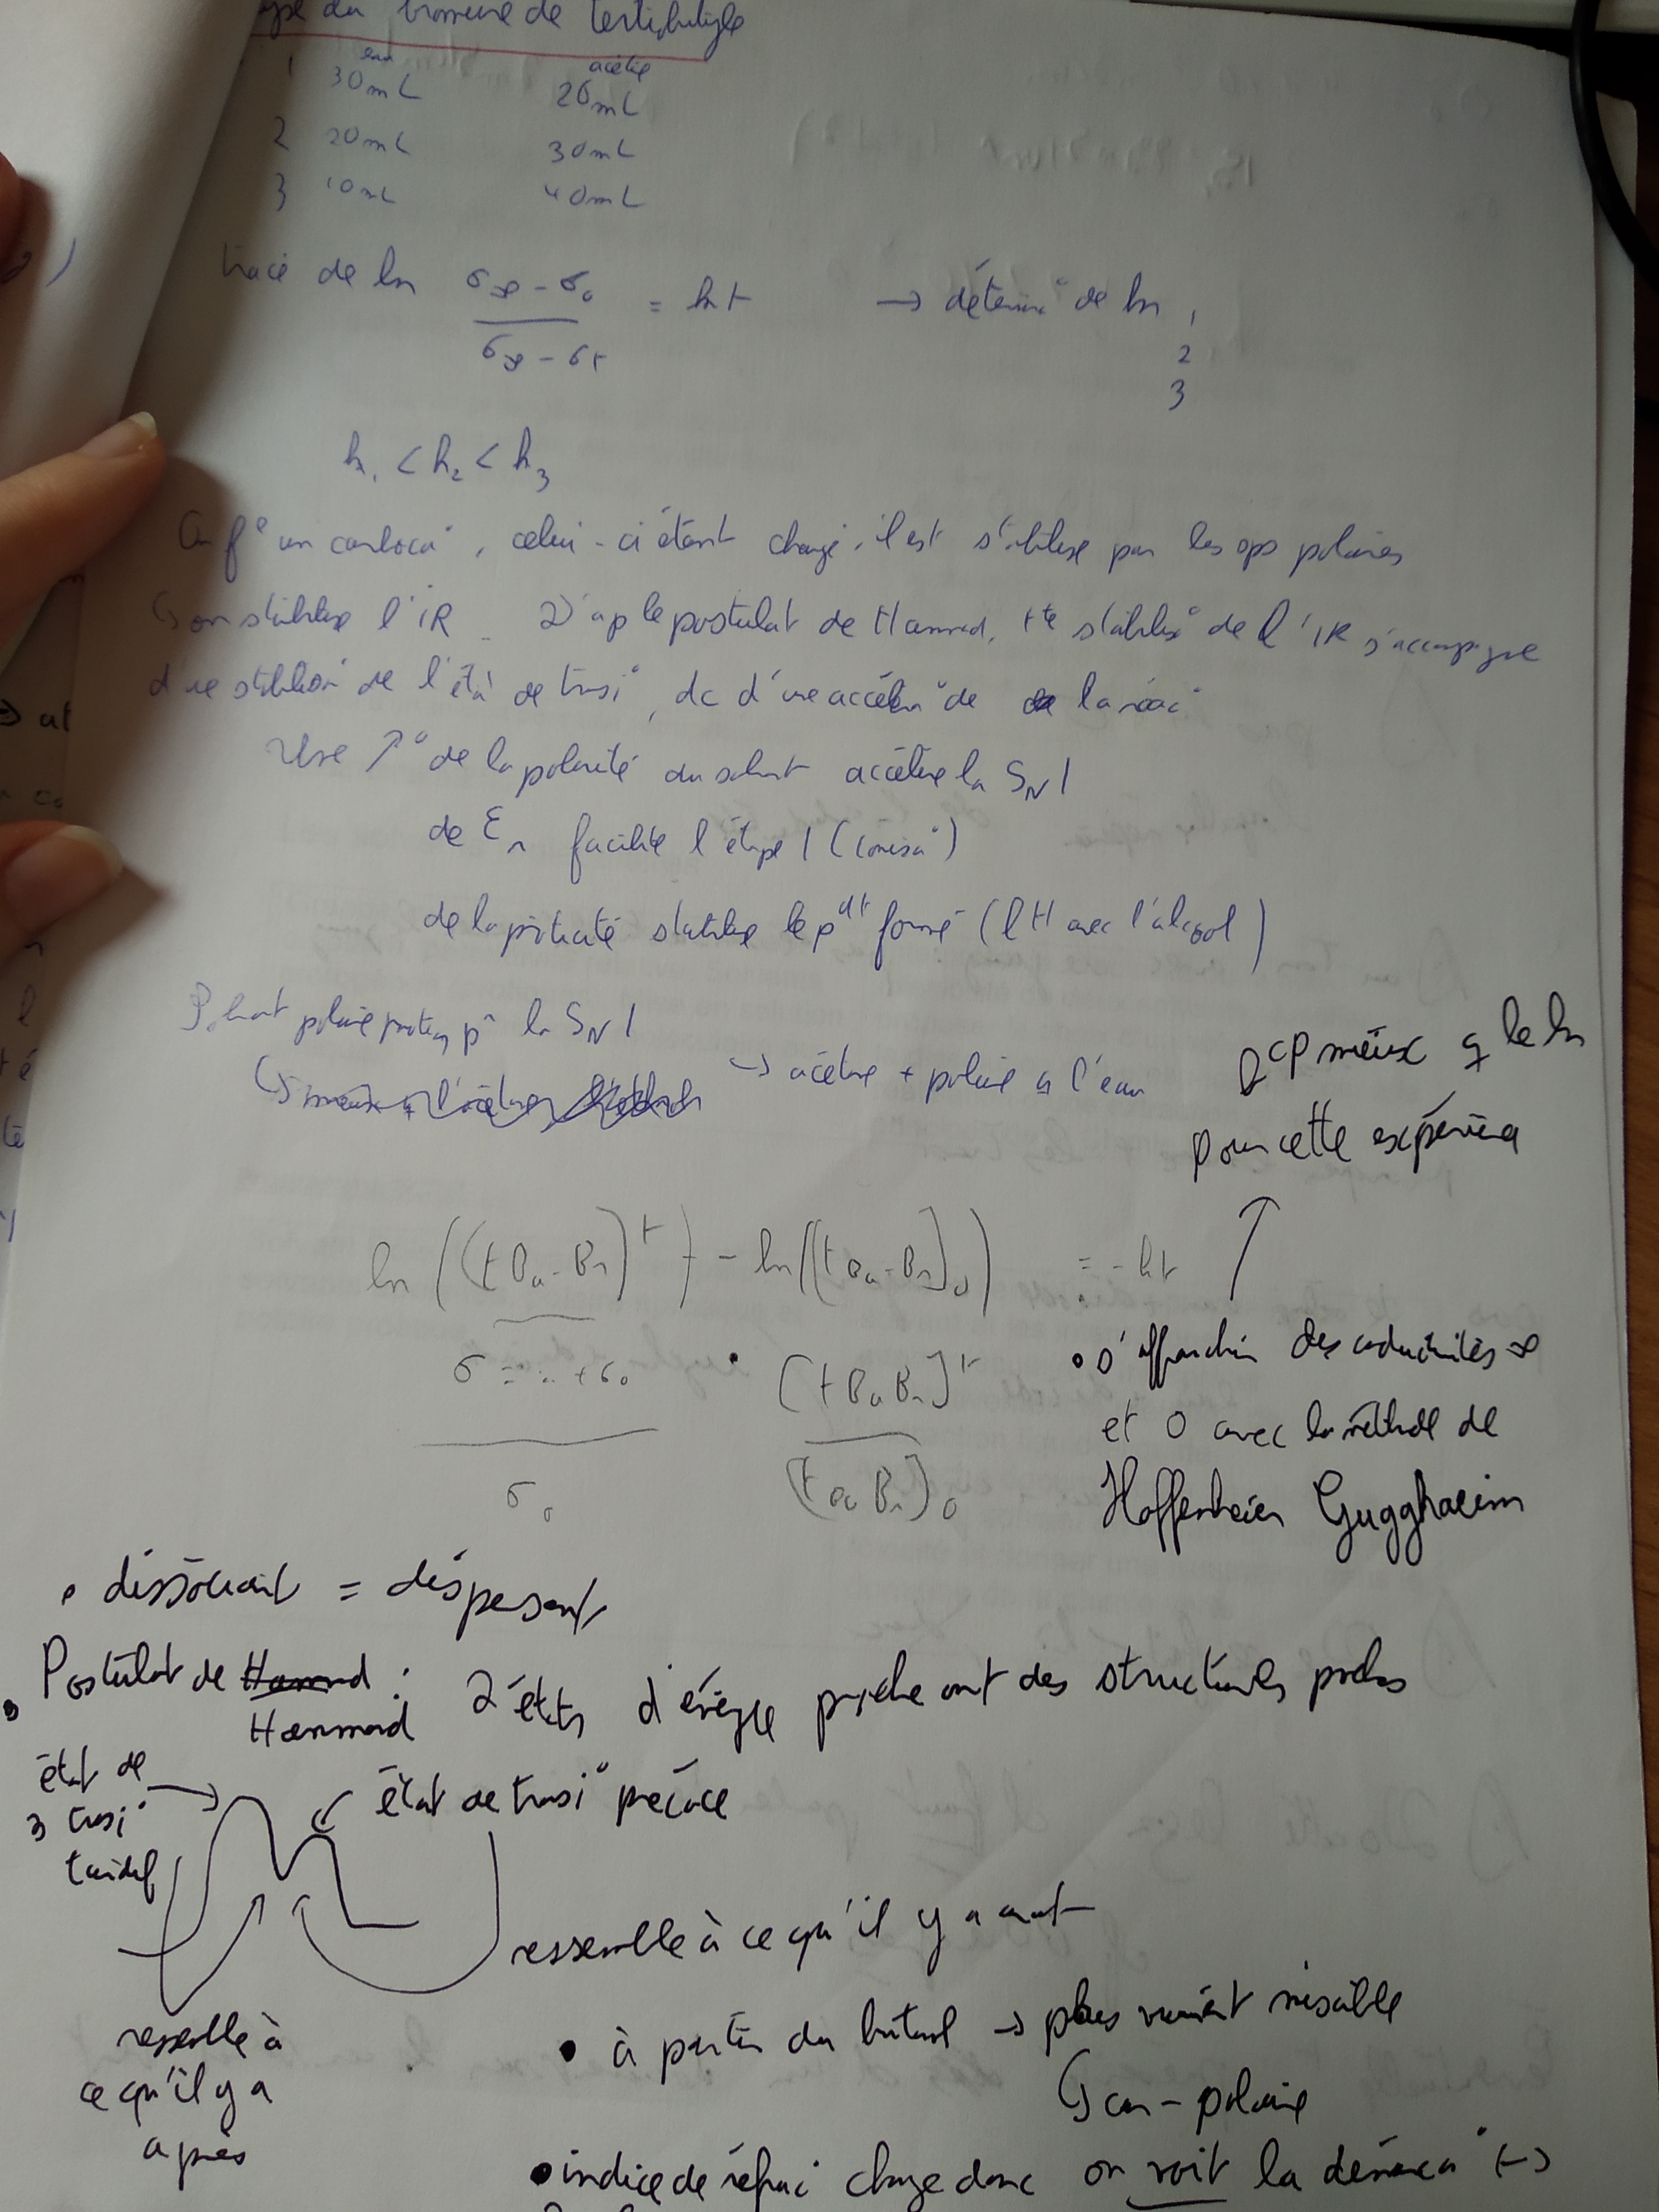 du bromure de tertiobutyle
eau acétone
1 30mL 20mL
2 20mL 30mL
3 10mL 40mL
tracé de ln (σ∞ - σ0)/(σ∞ - σt) = kt → détermi° de k 1
2
3
k1 < k2 < k3
On f° un carboca°, celui-ci étant chargé, il est stabilisé par les ops polaires
↳ on stabilise l'IR. D'ap le postulat de Hammond, tte stabilis° de l'IR s'accompagne
d'une stabilisa° de l'état de transi°, dc d'une accéléra° de la réac°
Une ↗° de la polarité du solvant accélère la SN1
de εr facilite l'étape 1 (ionisa°)
de la proticité stabilise le pdt formé (lH avec l'alcool)
Solvant polaire protiq pr la SN1
→ acétone + polaire q l'eau
bcp mieux q le ln
pour cette expérience
↑
ln ([tBu-Br]t) - ln([tBu-Br]0) = -kt
σ = .. + σ0
σ0
[tBuBr]t
[tBuBr]0
• s'affranchir des conductivités ∞
et 0 avec la méthode de
Gugghaeim
• dissociant = dispersant
• Postulat de Hammond : 2 états d'énergie proche ont des structures proches
état de
transi°
tardif
état de transi° précoce
ressemble à ce qu'il y a avant
ressemble à
ce qu'il y a
après
• à partir du butanol → plus vraiment miscible
↳ car - polaire
• indice de réfrac° change donc on voit la démixa° (→)